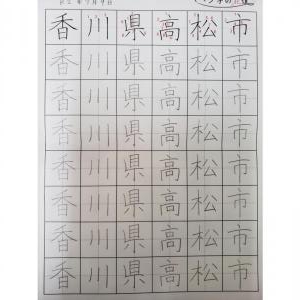 香川県高松市
香川県高松市
香川県高松市
香川県高松市
香川県高松市
香川県高松市
香川県高松市